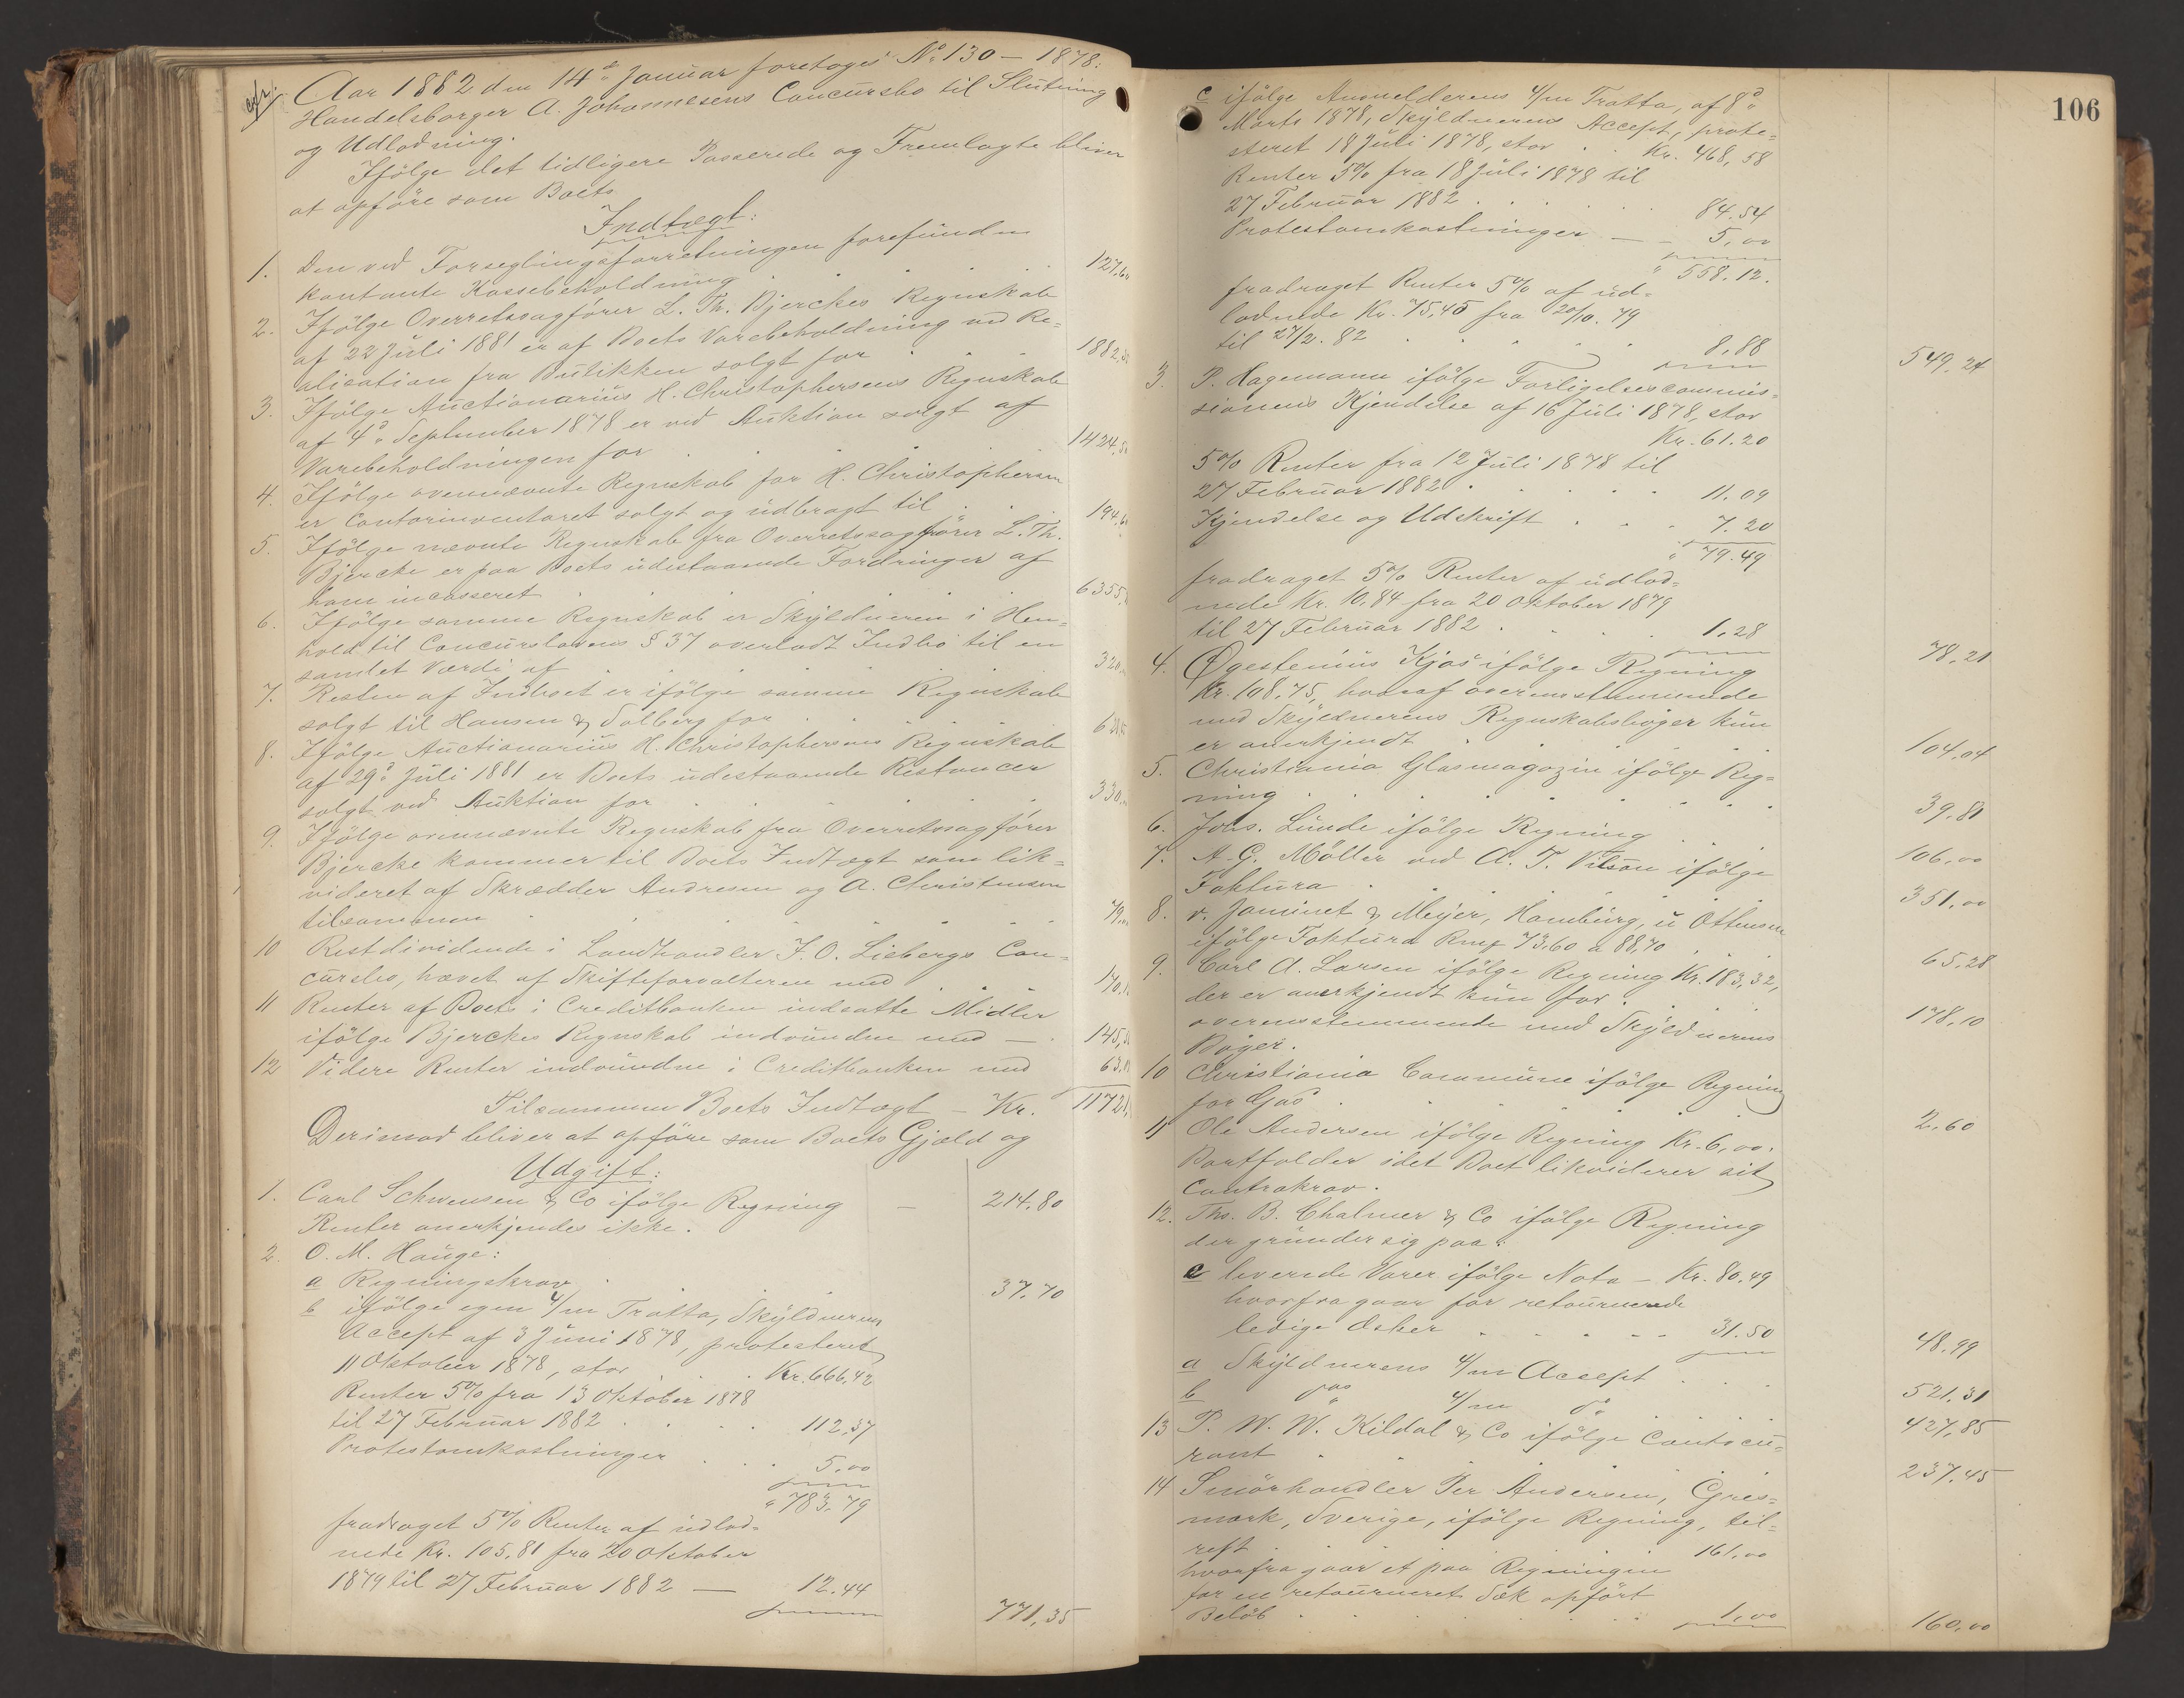 Aar 1882 den 14de Januar foretoges No 130 – 1878:
Handelsborger A. Johannesens Concursbo til Slutning
og Udlodning.
Ifölge det tidligere Passerede og Fremlagte bliver
at opföre som Boets
Indtægt:
1. Den ved Forseglingsforretningen forefundne
kontante Kassebeholdning . . . 127,60
2. Ifölge Overretssagförer L. Th. Bjerckes Regnskab
af 22 Juli 1881 er af Boets Varebeholdning ved Re=
alisation fra Butikken solgt for . . . 1882,
3. Ifölge Auctionarius H. Christophersens Regnskab
af 4de September 1878 er ved Auktion solgt af
Varebeholdningen for . . . 1424,
4. Ifölge ovennævnte Regnskab for H. Christophersen
er Contorinventaret solgt og udbragt til . . 194,
5. Ifölge nævnte Regnskab fra Overretssagförer L. Th.
Bjercke er paa Boets udestaaende Fordringer af
ham incasseret . . . 6355,
6. Ifölge samme Regnskab er Skyldneren i Hen=
hold til Concurslovens § 37 overladt Indbo til en
samlet Værdi af . . . 320,
7. Resten af Indboet er ifölge samme Regnskab
solgt til Hansen & Solberg for . . .
8. Ifölge Auctionarius H. Christophersens Regnskab
af 29de Juli 1881 er Boets udestaaende Restancer
solgt ved Auktion for . . . 330,
9. Ifölge ovennævnte Regnskab fra Overretssagförer
Bjercke kommer til Boets Indtægt som lik=
videret af Skrædder Andresen og A. Christensen
tilsammen . . . 79,
10 Restdividende i Landhandler J. O. Liebergs Con=
cursbo, hævet af Skifteforvalteren med . . 170,
11 Renter af Boets i Creditbanken indsatte Midler
ifölge Bjerckes Regnskab indvundne med — . 145,
12 Videre Renter indvundne i Creditbanken med 63,
Tilsammen Boets Indtægt – Kr. 11721,
Derimod bliver at opföre som Boets Gjæld og
Udgift:
1. Carl Schwensen & Co ifölge Regning — 214.80
Renter anerkjendes ikke.
2. O. M. Hauge:
a Regningskrav . . . 37.70
b ifölge egen 4/m Tratta, Skyldnerens
Accept af 3 Juni 1878, protesteret
11 Oktober 1878, stor . . Kr. 666,42
Renter 5% fra 13 Oktober 1878
til 27 Februar 1882 . . . 112,37
Protestomkostninger . . . 5.00
" 783,79
fradraget 5% Renter af udlod=
nede Kr. 105,81 fra 20 Oktober
1879 til 27 Februar 1882 — 12.44
771,35
106
c ifölge Anmelderens 4/m Tratta, af 8de
Marts 1878, Skyldnerens Accept, prote=
steret 18 Juli 1878, stor . . Kr. 468,58
Renter 5% fra 18 Juli 1878 til
27 Februar 1882 . . . 84.54
Protestomkostninger — – 5,00
" 558.12.
fradraget Renter 5% af ud=
lodnede Kr. 75,45 fra 20/10. 79
til 27/2. 82 . . . 8,88
549,24
3. P. Hagemann ifölge Forligelsescommis=
sionens Kjendelse af 16 Juli 1878, stor
Kr. 61.20
5% Renter fra 12 Juli 1878 til
27 Februar 1882 . . . 11.09
Kjendelse og Udskrift . . . 7.20
" 79.49
fradraget 5% Renter af udlod=
nede Kr. 10,84 fra 20 Oktober 1879
til 27 Februar 1882 . . . 1,28
78,21
4. Øgestenius Kjøs ifölge Regning
Kr. 108,75, hvoraf overensstemmende
med Skyldnerens Regnskabsböger kun
er anerkjendt . . . 104,04
5. Christiania Glasmagazin ifölge Reg=
ning . . . 39,81
6. Johs. Lunde ifölge Regning . . . 106,00
7. A. G. Möller ved A. T. ifölge
Faktura . . . 351,00
8. v. Jaminet & Meyer, Hamburg, u Ottensen
ifölge Faktura Rmf 73,60 a 88,70 . . 65,28
9. Carl A. Larsen ifölge Regning Kr. 183,32,
der er anerkjendt kun for . . . 178,10
overensstemmende med Skyldnerens
Böger.
10 Christiania Commune ifölge Regning
for Gas . . . 2.60
11 Ole Andersen ifölge Regning Kr. 6,00.
Bortfalder idet Boet likviderer sit
Contrakrav.
12. Ths. B. Chalmer & Co ifölge Regning
der grunder sig paa:
leverede Varer ifölge Nota – Kr. 80.49
hvorfra gaar for retournerede
ledige Æsker . . . 31.50
48.99
a Skyldnerens 4/m Accept . . . 521,31
b 4/m do 427,85
13 P. W. W. Kildal & Co ifölge Contocu=
rant . . . 237,45
14 Smörhandler Per Andersen, Gres=
mark, Sverige, ifölge Regning, til=
rest . . . 161,00
hvorfra gaar et paa Regningen
for en retourneret Sæk opfört
Belöb . . . 1,00
160,00